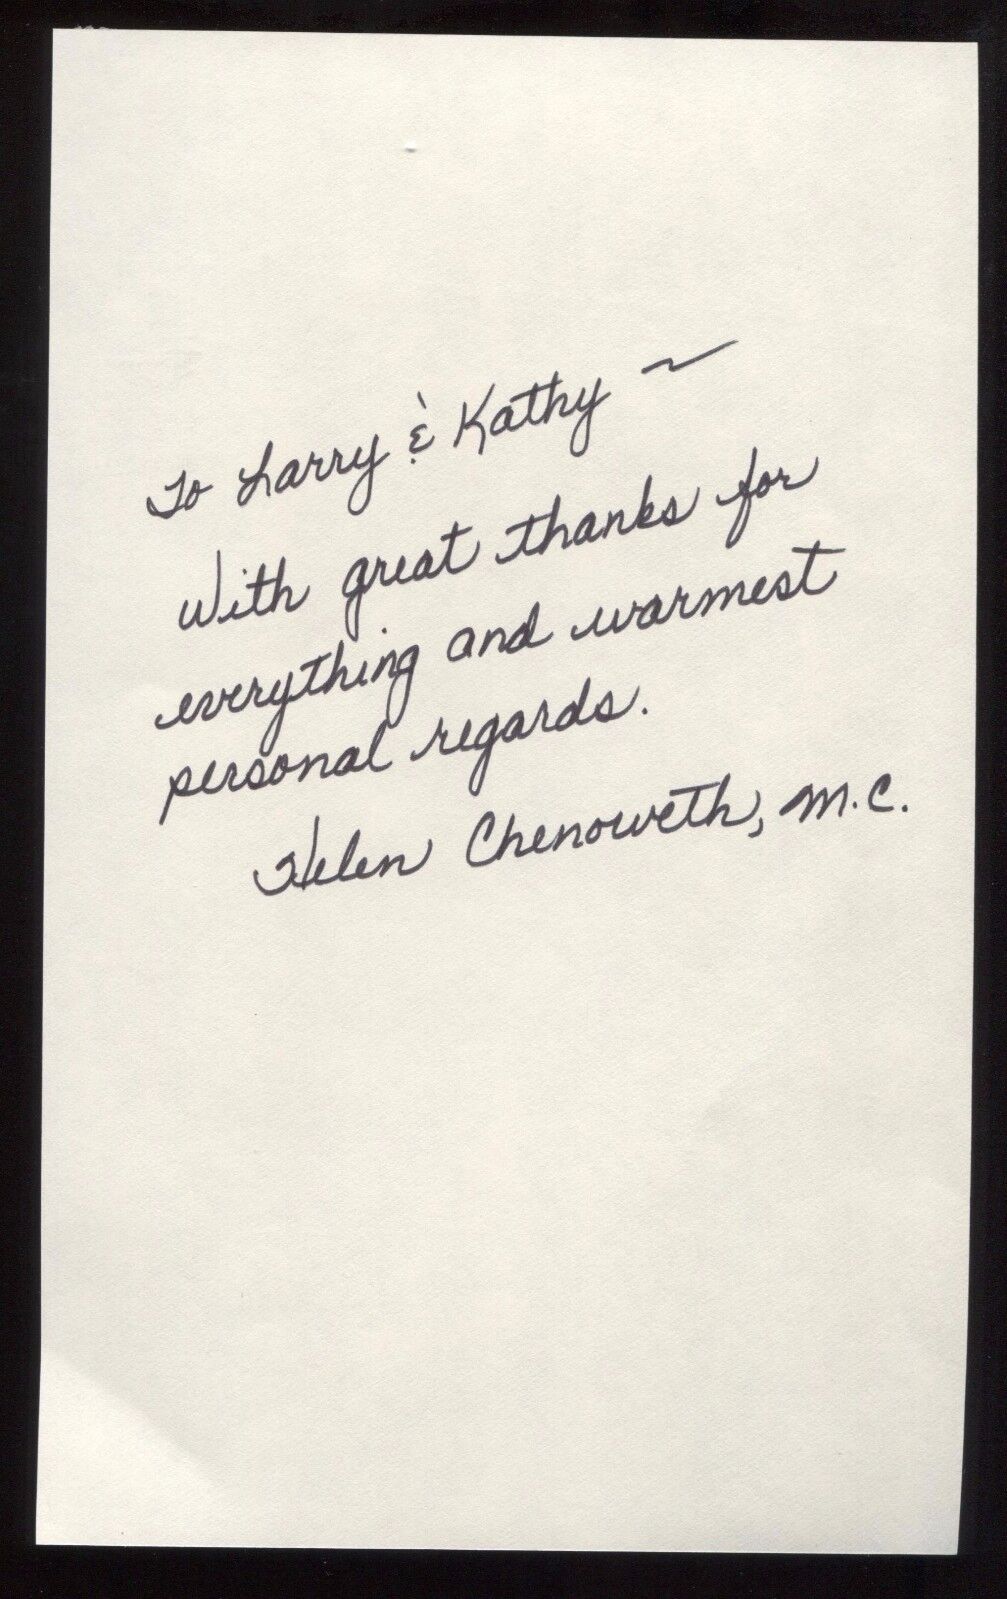 To Larry & Kathy ~
With great thanks for
everything and warmest
personal regards.
Helen Chenoweth, M.C.